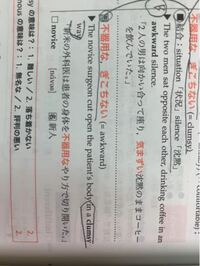 ■ 結合：situation「状況」, silence「沈黙」
▶ The two men sat opposite each other, drinking coffee in an
awkward silence.
「2人の男は向かい合って座り、気まずい沈黙のままコーヒー
を飲んでいた。」
不器用な、ぎこちない (= awkward)
▶ The novice surgeon cut open the patient's body (in a clumsy
way).
「新米の外科医は患者の身体を不器用なやり方で切り開いた。」
□ novice [nάvəs] 名 新人
の意味は？：1. 難しい／2. 落ち着かない
の意味は？：1. 無名な／2. 評判の悪い
2.
2.